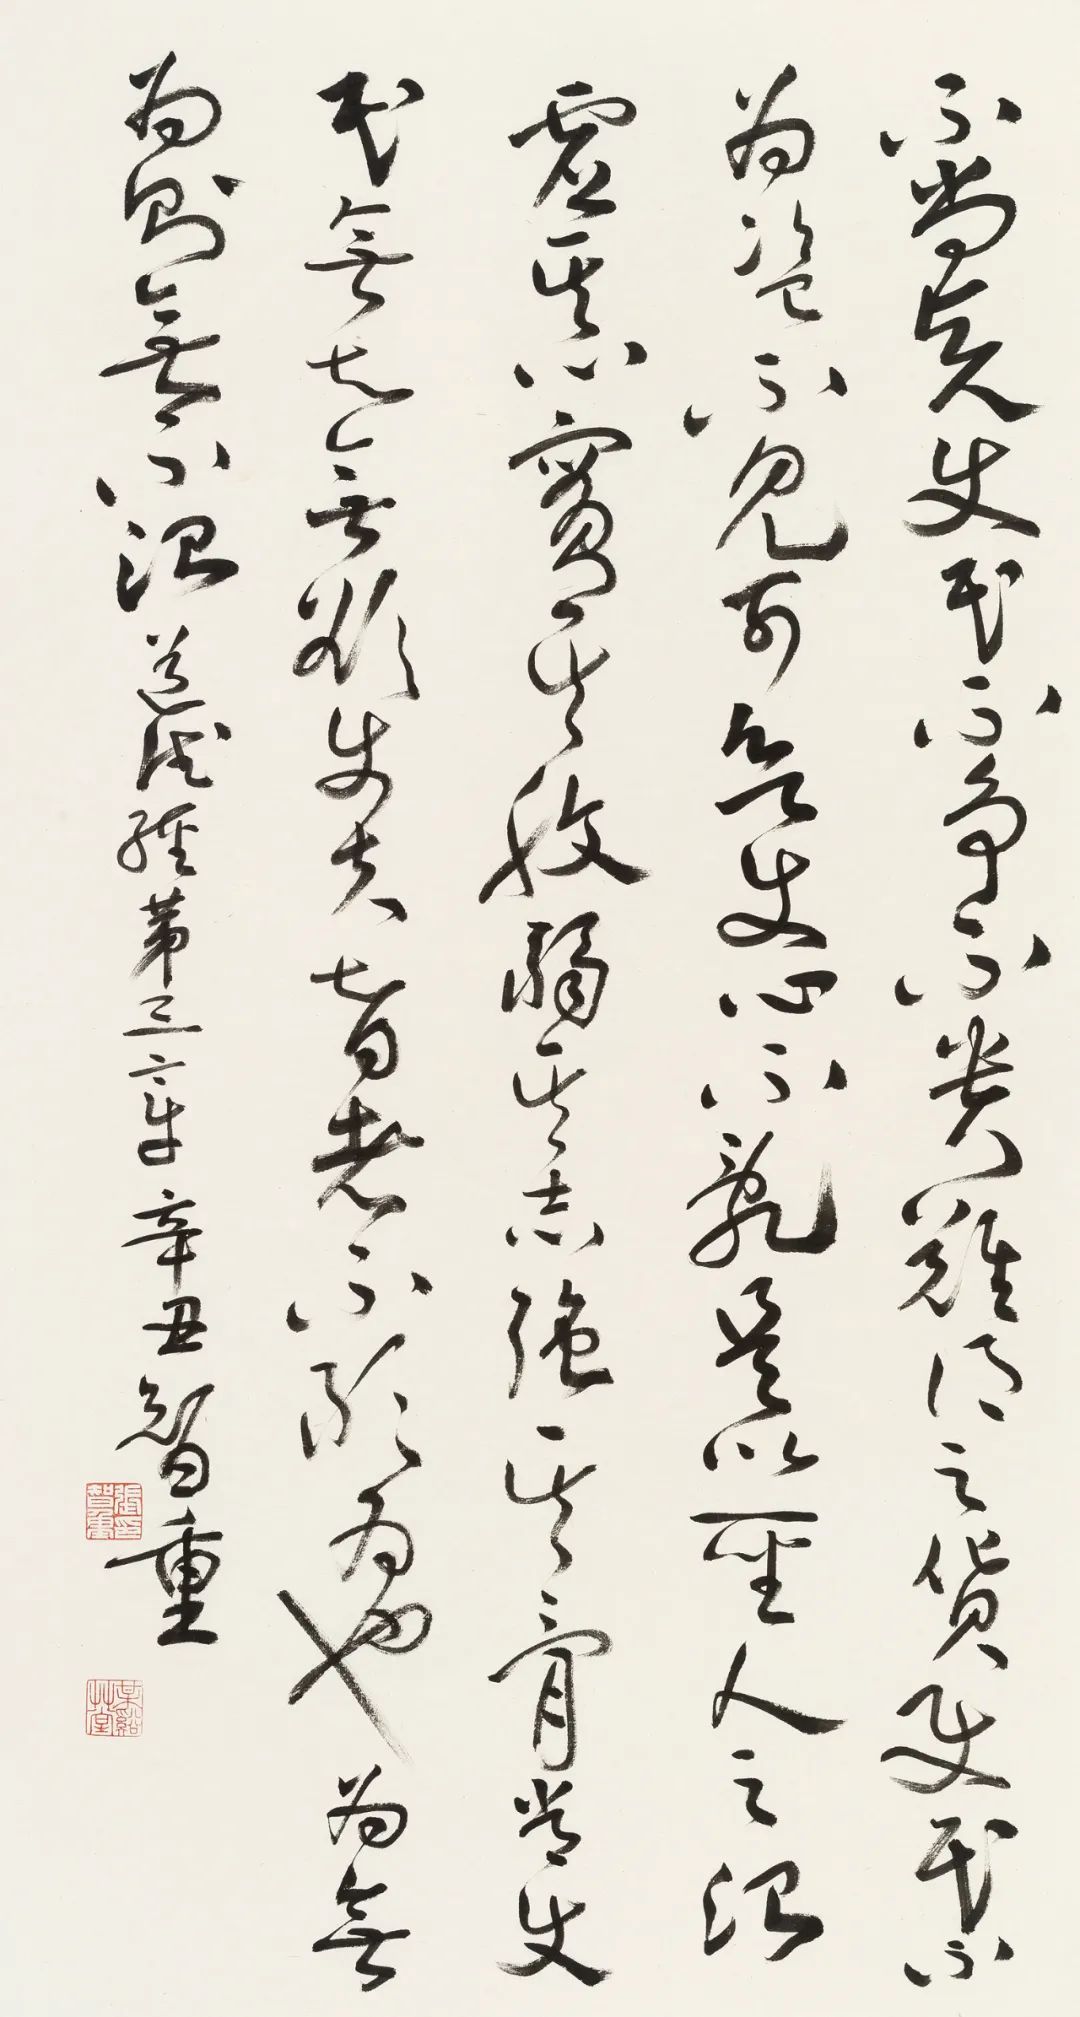 不尚賢使民不爭不貴難得之貨使民不
為盜不見可欲使心不亂是以聖人之治
虛其心實其腹弱其志強其骨常使
民無知無欲使夫智者不敢為也為無
為則無不治 道德經第三章 辛丑 智重
張印智重
某谿艸堂